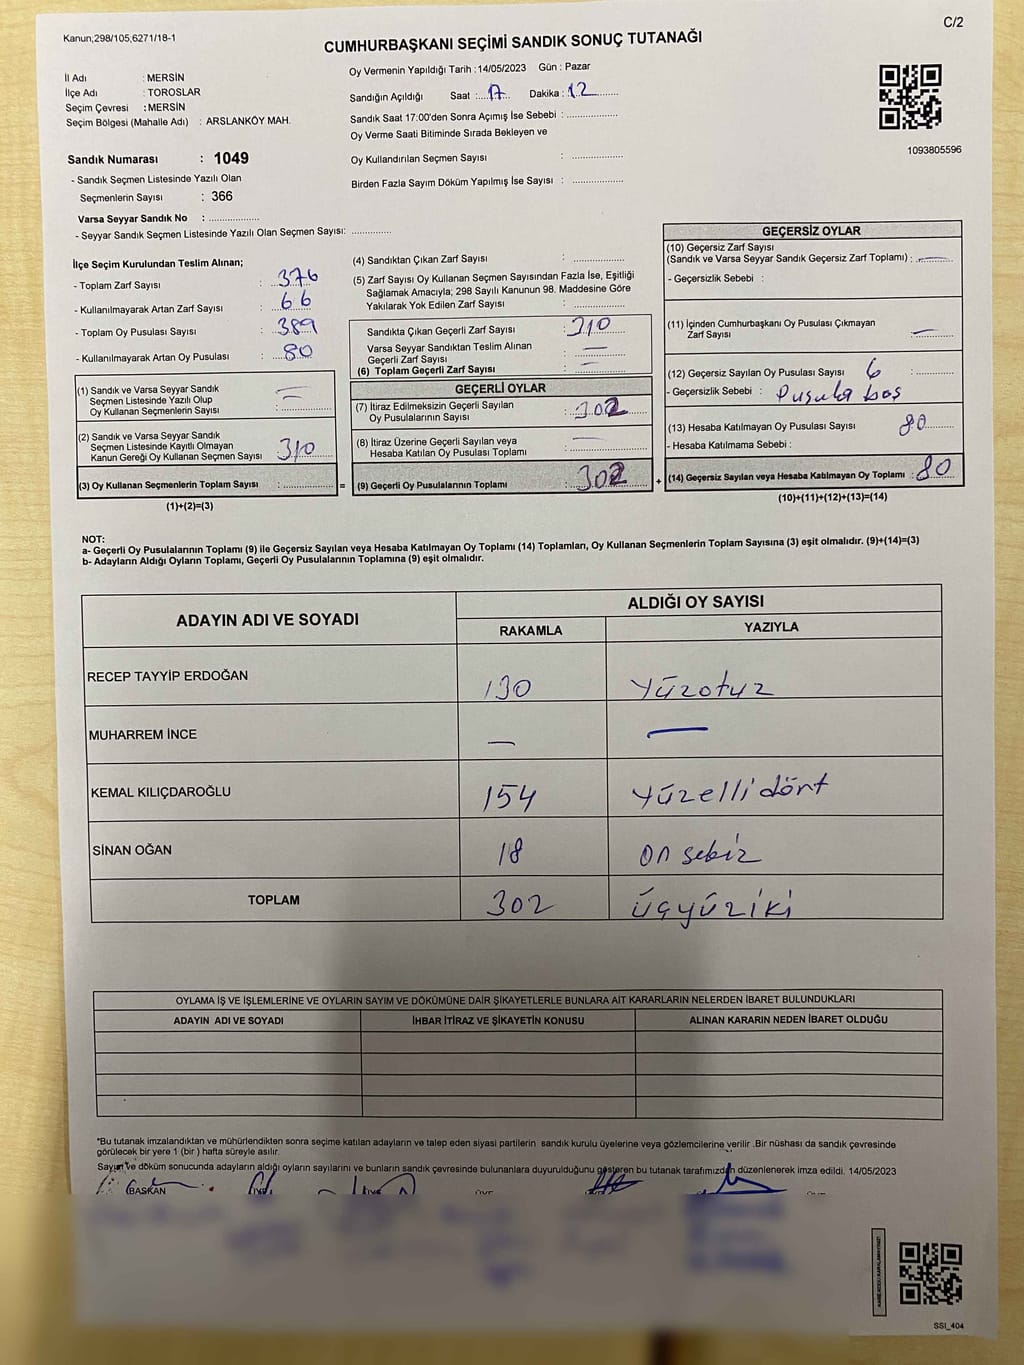 C/2
Kanun,298/105,6271/18-1
CUMHURBAŞKANI SEÇİMİ SANDIK SONUÇ TUTANAĞI
İl Adı : MERSİN
İlçe Adı : TOROSLAR
Seçim Çevresi : MERSİN
Seçim Bölgesi (Mahalle Adı) : ARSLANKÖY MAH.
Sandık Numarası : 1049
- Sandık Seçmen Listesinde Yazılı Olan
Seçmenlerin Sayısı : 366
Varsa Seyyar Sandık No : ...................
- Seyyar Sandık Seçmen Listesinde Yazılı Olan Seçmen Sayısı: ..............
Oy Vermenin Yapıldığı Tarih : 14/05/2023 Gün : Pazar
Sandığın Açıldığı Saat : 17 Dakika : 12
Sandık Saat 17:00'den Sonra Açımış İse Sebebi : ...................
Oy Verme Saati Bitiminde Sırada Bekleyen ve
Oy Kullandırılan Seçmen Sayısı : ...................
Birden Fazla Sayım Döküm Yapılmış İse Sayısı : ...................
1093805596
İlçe Seçim Kurulundan Teslim Alınan;
- Toplam Zarf Sayısı : 376
- Kullanılmayarak Artan Zarf Sayısı : 66
- Toplam Oy Pusulası Sayısı : 389
- Kullanılmayarak Artan Oy Pusulası : 80
(1) Sandık ve Varsa Seyyar Sandık
Seçmen Listesinde Yazılı Olup
Oy Kullanan Seçmenlerin Sayısı : —
(2) Sandık ve Varsa Seyyar Sandık
Seçmen Listesinde Kayıtlı Olmayan
Kanun Gereği Oy Kullanan Seçmen Sayısı : 310
(3) Oy Kullanan Seçmenlerin Toplam Sayısı : ............... =
(1)+(2)=(3)
(4) Sandıktan Çıkan Zarf Sayısı : ...................
(5) Zarf Sayısı Oy Kullanan Seçmen Sayısından Fazla İse, Eşitliği
Sağlamak Amacıyla; 298 Sayılı Kanunun 98. Maddesine Göre
Yakılarak Yok Edilen Zarf Sayısı : ...................
Sandıkta Çıkan Geçerli Zarf Sayısı : 310
Varsa Seyyar Sandıktan Teslim Alınan
Geçerli Zarf Sayısı : —
(6) Toplam Geçerli Zarf Sayısı : —
GEÇERLİ OYLAR
(7) İtiraz Edilmeksizin Geçerli Sayılan
Oy Pusulalarının Sayısı : 302
(8) İtiraz Üzerine Geçerli Sayılan veya
Hesaba Katılan Oy Pusulası Toplamı : —
(9) Geçerli Oy Pusulalarının Toplamı : 302 +
GEÇERSİZ OYLAR
(10) Geçersiz Zarf Sayısı
(Sandık ve Varsa Seyyar Sandık Geçersiz Zarf Toplamı) : —
- Geçersizlik Sebebi :
(11) İçinden Cumhurbaşkanı Oy Pusulası Çıkmayan
Zarf Sayısı : —
(12) Geçersiz Sayılan Oy Pusulası Sayısı 6 : ............
- Geçersizlik Sebebi : Pusula boş
(13) Hesaba Katılmayan Oy Pusulası Sayısı : 80
- Hesaba Katılmama Sebebi :
(14) Geçersiz Sayılan veya Hesaba Katılmayan Oy Toplamı : 80
(10)+(11)+(12)+(13)=(14)
NOT:
a- Geçerli Oy Pusulalarının Toplamı (9) ile Geçersiz Sayılan veya Hesaba Katılmayan Oy Toplamı (14) Toplamları, Oy Kullanan Seçmenlerin Toplam Sayısına (3) eşit olmalıdır. (9)+(14)=(3)
b- Adayların Aldığı Oyların Toplamı, Geçerli Oy Pusulalarının Toplamına (9) eşit olmalıdır.
ADAYIN ADI VE SOYADI ALDIĞI OY SAYISI
RAKAMLA YAZIYLA
RECEP TAYYİP ERDOĞAN 130 Yüzotuz
MUHARREM İNCE — —
KEMAL KILIÇDAROĞLU 154 Yüzellidört
SİNAN OĞAN 18 on sekiz
TOPLAM 302 üçyüziki
OYLAMA İŞ VE İŞLEMLERİNE VE OYLARIN SAYIM VE DÖKÜMÜNE DAİR ŞİKAYETLERLE BUNLARA AİT KARARLARIN NELERDEN İBARET BULUNDUKLARI
ADAYIN ADI VE SOYADI İHBAR İTİRAZ VE ŞİKAYETİN KONUSU ALINAN KARARIN NEDEN İBARET OLDUĞU
*Bu tutanak imzalandıktan ve mühürlendikten sonra seçime katılan adayların ve talep eden siyasi partilerin sandık kurulu üyelerine veya gözlemcilerine verilir .Bir nüshası da sandık çevresinde
görülecek bir yere 1 (bir ) hafta süreyle asılır.
Sayım ve döküm sonucunda adayların aldığı oyların sayılarını ve bunların sandık çevresinde bulunanlara duyurulduğunu gösteren bu tutanak tarafımızdan düzenlenerek imza edildi. 14/05/2023
BAŞKAN ÜYE ÜYE ÜYE
SSI_404